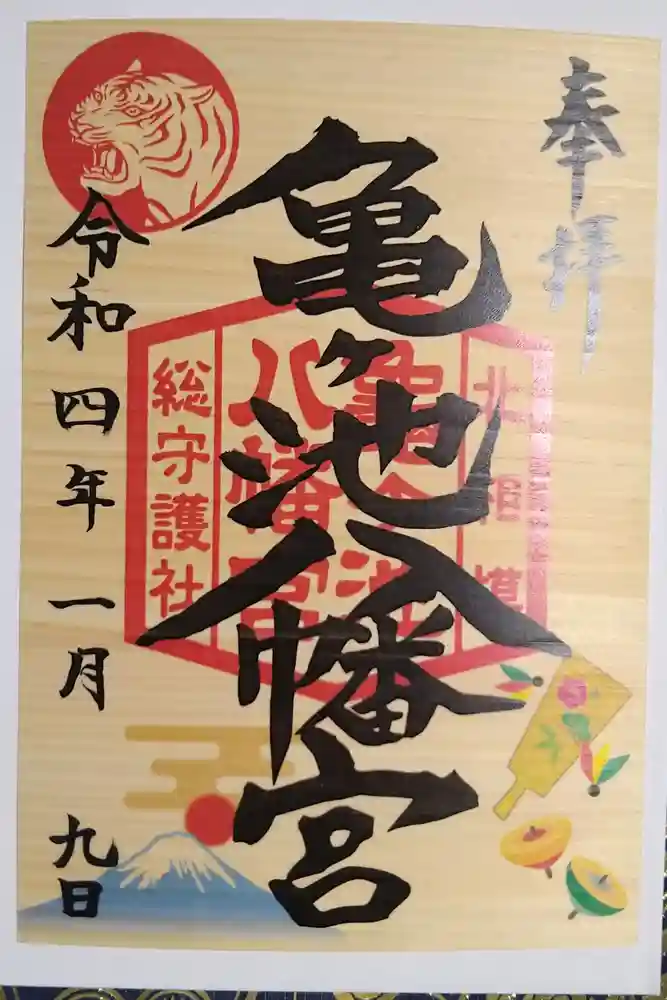 奉拝
亀ヶ池八幡宮
北相模
亀ヶ池
八幡宮
総守護社
令和四年一月九日